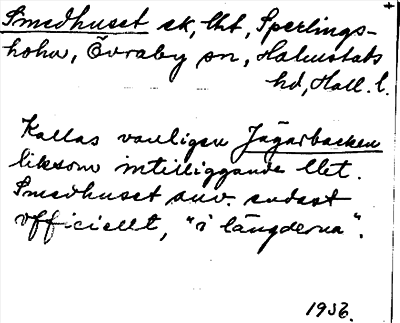 Smedhuset sk, lht, Sperlings-
holm, Övraby sn, Halmstads
hd, Hall. l.
Kallas vanligen Jägarbacken
liksom intilliggande lht.
Smedhuset anv. endast
officiellt, "i längderna".
1936.